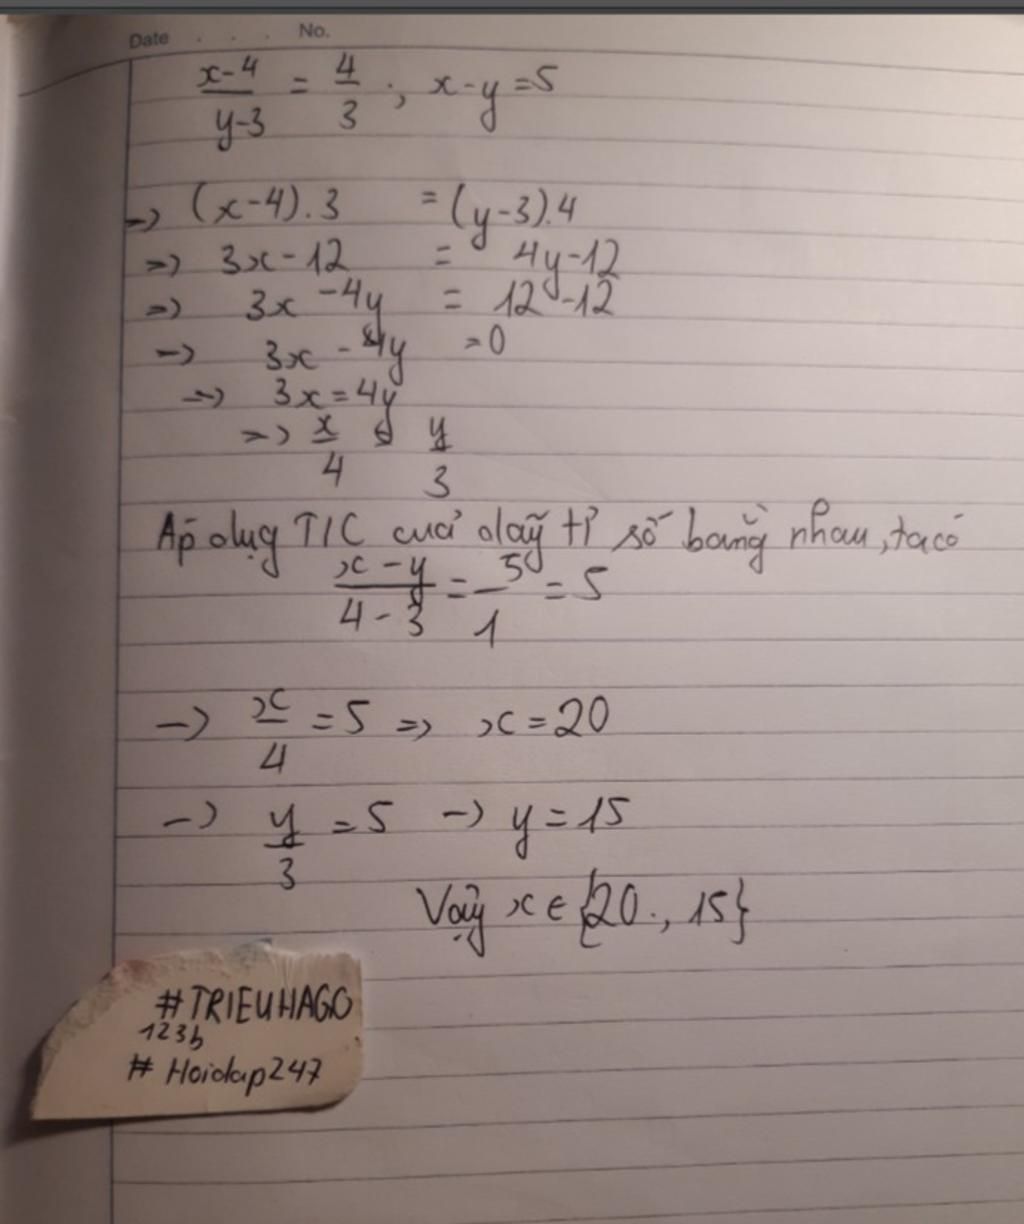 Date . . . No.
x-4/y-3 = 4/3 ; x-y=5
=> (x-4).3 = (y-3).4
=> 3x-12 = 4y-12
=> 3x-4y = 12-12
=> 3x-4y =0
=> 3x=4y
=> x/4 = y/3
Áp dụg T/C cuả dãy tỉ số bằng nhau, ta có
x-y/4-3 = 5/1 = 5
-> x/4 = 5 => x=20
-> y/3 = 5 -> y=15
Vậy x ∈ {20., 15}
#TRIEUHAGO
123b
# Hoidap247